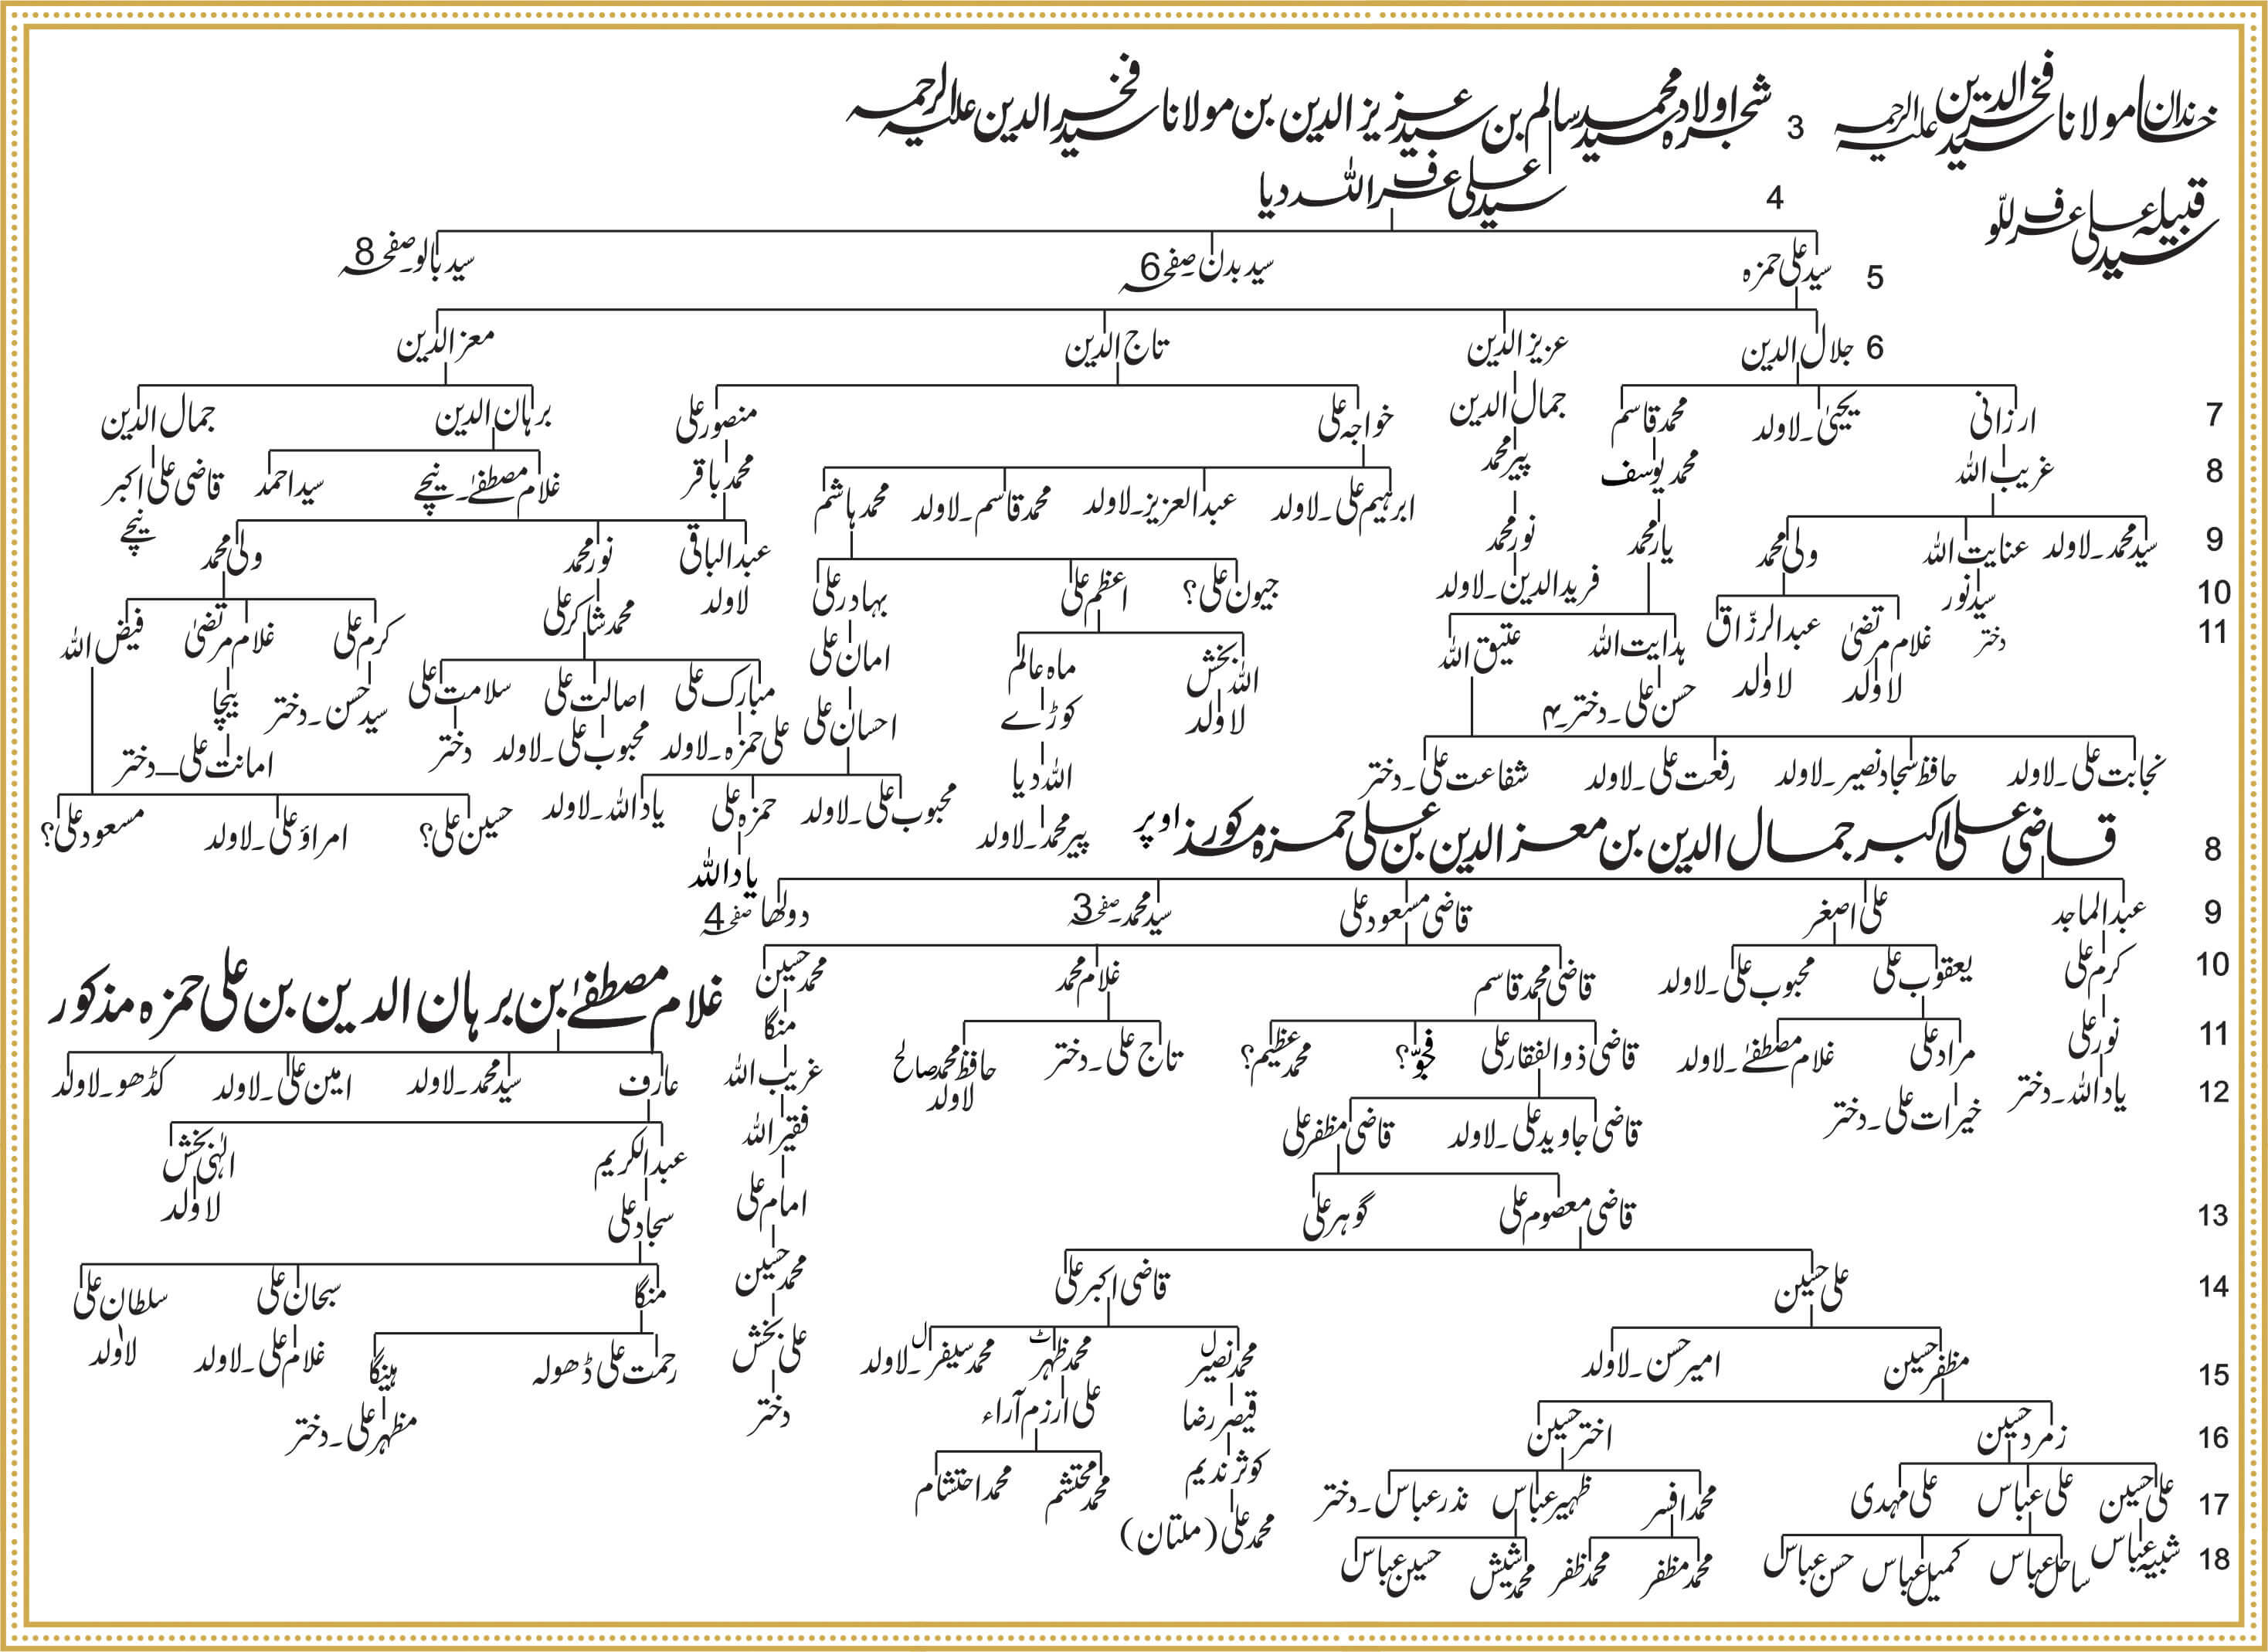 خاندان مولانا سید فخر الدین علیہ الرحمہ 3 شجرہ اولاد سید محمد سالم بن سید عزیز الدین بن مولانا سید فخر الدین علیہ الرحمہ
قبیلہ سید علی عرف للّو 4 سید علی عرف اللہ دیا
5 سید علی حمزہ سید بدن۔صفحہ 6 سید بالو۔صفحہ 8
6 جلال الدین عزیز الدین تاج الدین معز الدین
7 ارزانی یحییٰ۔لاولد محمد قاسم جمال الدین خواجہ علی منصور علی برہان الدین جمال الدین
8 غریب اللہ محمد یوسف پیر محمد ابرہیم علی۔لاولد عبدالعزیز۔لاولد محمد قاسم۔لاولد محمد ہاشم محمد باقر غلام مصطفےٰ۔نیچے سید احمد قاضی علی اکبر نیچے
9 سید محمد۔لاولد عنایت اللہ ولی محمد یار محمد نور محمد جیون علی؟ اعظم علی بہادر علی عبدالباقی نور محمد ولی محمد
10 سید نور غلام مرتضیٰ عبدالرزّاق فرید الدین۔لاولد لاولد محمد شاکر علی کرم علی غلام مرتضیٰ فیض اللہ
11 دختر لاولد لاولد ہدایت اللہ عتیق اللہ اللہ بخش ماہ عالم امان علی
حسن علی۔دختر۔۴ لاولد کوڑے احسان علی مبارک علی اصالت علی سلامت علی سید حسن۔دختر بیچا
علی حمزہ۔لاولد محبوب علی۔لاولد دختر امانت علی_دختر
نجابت علی۔لاولد حافظ سجاد نصیر۔لاولد رفعت علی۔لاولد شفاعت علی۔دختر اللہ دیا
پیر محمد۔لاولد محبوب علی۔لاولد حمزہ علی یاد اللہ۔لاولد حسین علی؟ امراؤ علی۔لاولد مسعود علی؟
یاد اللہ
8 قاضی علی اکبر جمال الدین بن معز الدین بن علی حمزہ مذکور از اوپر
9 عبدالماجد علی اصغر قاضی مسعود علی سید محمد۔صفحہ 3 دولھا صفحہ 4
10 کرم علی یعقوب علی محبوب علی۔لاولد قاضی محمد قاسم غلام محمد محمد حسین
غلام مصطفےٰ بن برہان الدین بن علی حمزہ مذکور
11 نور علی مراد علی غلام مصطفےٰ۔لاولد قاضی ذوالفقار علی فجوّ؟ محمد عظیم؟ تاج علی۔دختر حافظ محمد صالح لاولد منگا
غریب اللہ عارف سید محمد۔لاولد امین علی۔لاولد کڈھو۔لاولد
12 یاد اللہ۔دختر خیرات علی۔دختر قاضی جاوید علی۔لاولد قاضی مظفر علی فقیر اللہ
عبدالکریم الٰہی بخش
لاولد
13 قاضی معصوم علی گوہر علی امام علی سجاد علی
14 علی حسین قاضی اکبر علی محمد حسین منگا سبحان علی سلطان علی
15 مظفر حسین امیر حسن۔لاولد محمد نصیر ل محمد ظہر ٹ محمد سیفر ل۔لاولد علی بخش رحمت علی ڈھولہ ہینگا غلام علی۔لاولد لاولد
قیصر رضا علی ارزم آراء دختر مظہر علی۔دختر
16 زمرد حسین اختر حسین کوثر ندیم
محمد محتشم محمد احتشام
17 علی حسین علی عباس علی مہدی محمد افسر ظہیر عباس نذر عباس۔دختر محمد علی (ملتان)
18 شبیہ عباس ساحل عباس کمیل عباس حسن عباس محمد مظفر محمد ظفر محمد شیش حسین عباس